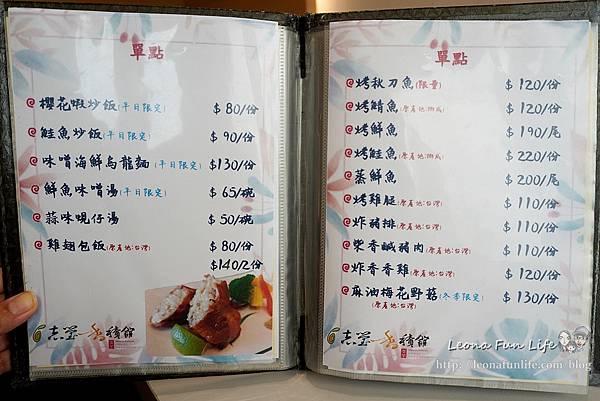 單點
櫻花蝦炒飯(平日限定) $80/份
鮭魚炒飯(平日限定) $90/份
味噌海鮮烏龍麵(平日限定) $130/份
鮮魚味噌湯(平日限定) $65/碗
蒜味蜆仔湯 $50/碗
雞翅包飯(原產地:台灣) $80/份
$140/2份
單點
烤秋刀魚(限量) $120/份
烤鯖魚(原產地:挪威) $120/份
烤鮮魚 $190/尾
烤鮭魚(原產地:挪威) $220/份
蒸鮮魚 $200/尾
烤雞腿(原產地:台灣) $110/份
炸豬排(原產地:台灣) $110/份
柴香鹹豬肉(原產地:台灣) $110/份
炸香香雞(原產地:台灣) $120/份
麻油梅花野菇(冬季限定) $130/份
(原產地:台灣)
Leona Fun Life
http://leonafunlife.com/blog